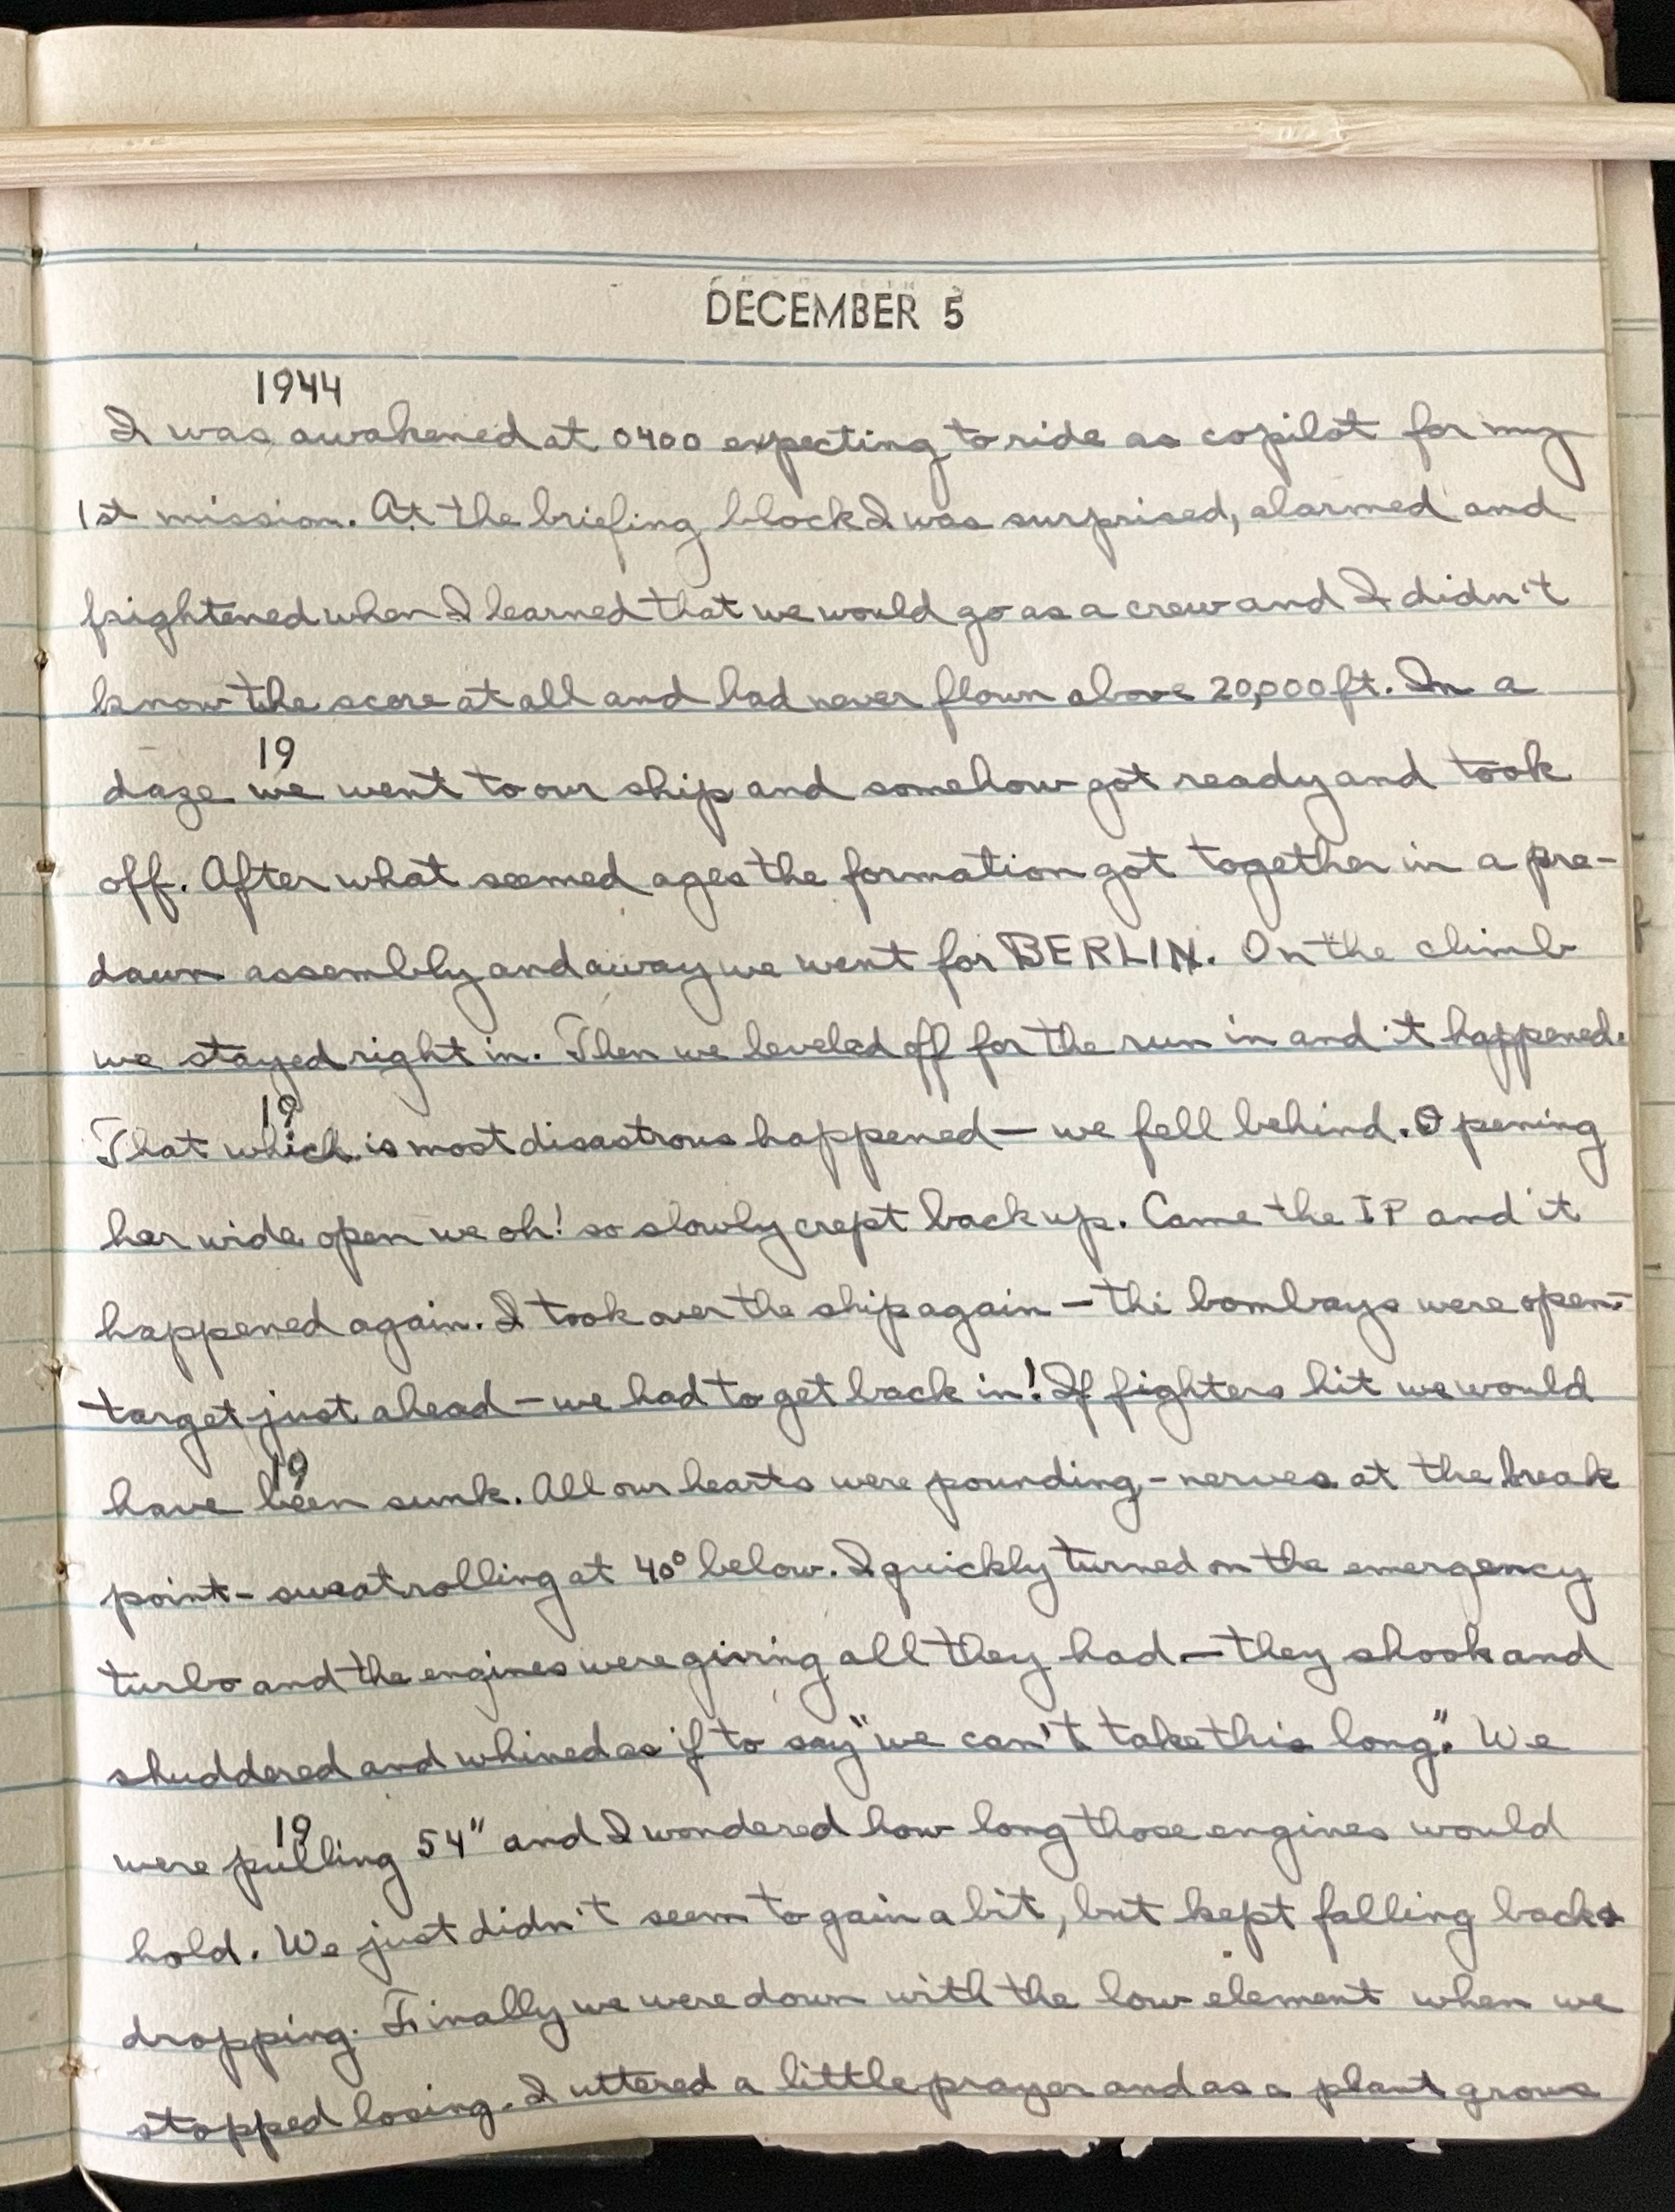 DECEMBER 5
1944
I was awakened at 0400 expecting to ride as copilot for my
1st mission. At the briefing block I was surprised, alarmed and
frightened when I learned that we would go as a crew and I didn't
know the score at all and had never flown above 20,000 ft. In a
19
daze we went to our ship and somehow got ready and took
off. After what seemed ages the formation got together in a pre-
dawn assembly and away we went for BERLIN. On the climb
we stayed right in. Then we leveled off for the run in and it happened.
19
That which is most disastrous happened — we fell behind. Opening
her wide open we oh! so slowly crept back up. Came the IP and it
happened again. I took over the ship again — the bombays were open-
target just ahead — we had to get back in! If fighters hit we would
19
have been sunk. All our hearts were pounding - nerves at the break
point - sweat rolling at 40° below. I quickly turned on the emergency
turbo and the engines were giving all they had — they shook and
shuddered and whined as if to say "we can't take this long". We
19
were pulling 54" and I wondered how long those engines would
hold. We just didn't seem to gain a bit, but kept falling back &
dropping. Finally we were down with the low element when we
stopped losing. I uttered a little prayer and as a plant grows